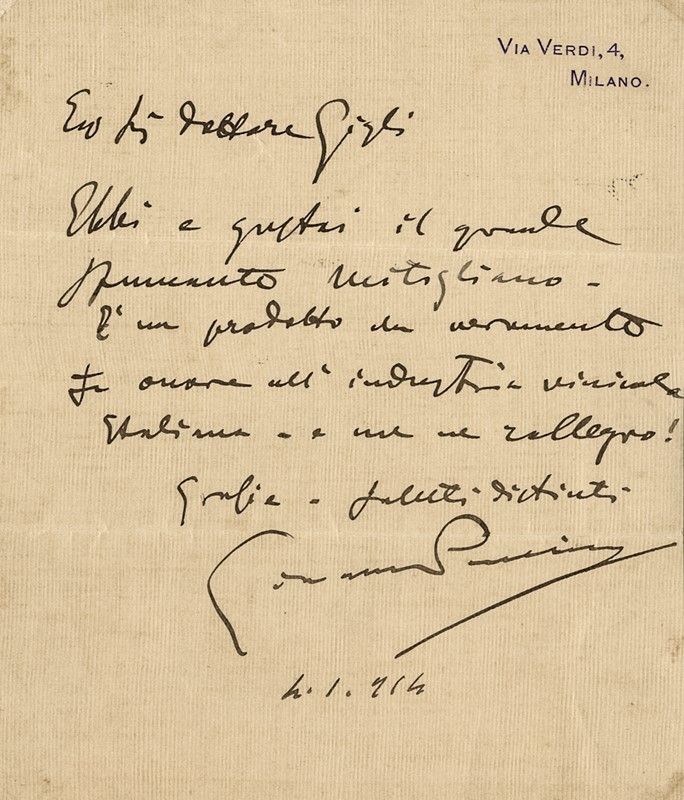 VIA VERDI, 4,
MILANO.
Dottore Gigli
Ebbi e gustai il grande
spumanto Mitigliano -
È un prodotto che veramento
fa onore all' industria vinicola
Italiana - e me ne rallegro!
Grazie - saluti distinti
Giacomo Puccini
4.1.914